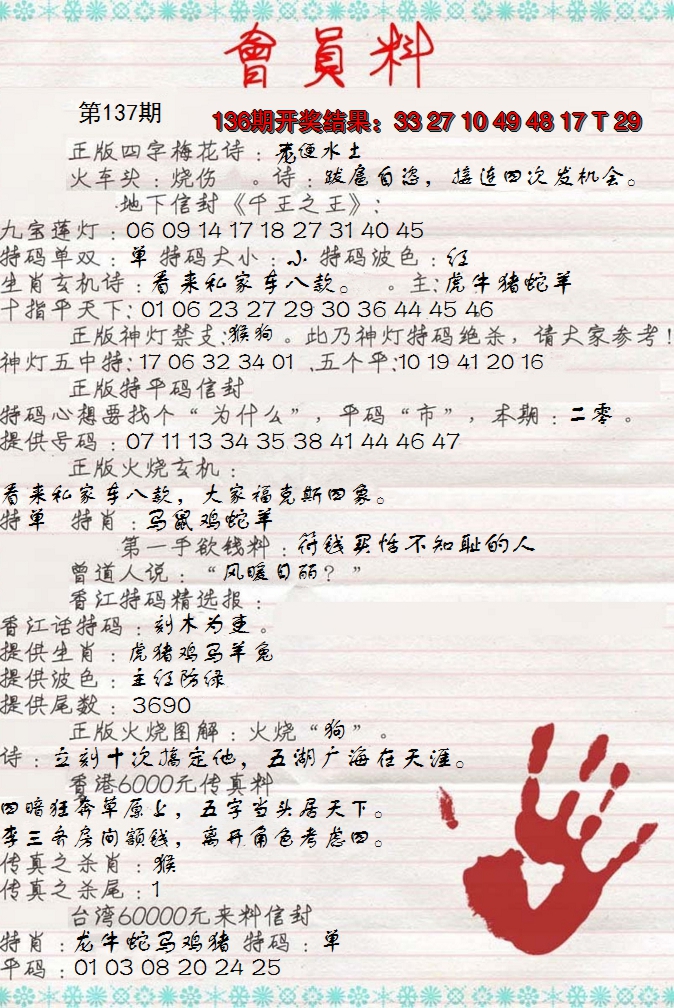 會員料
第137期
136期开奖结果：33 27 10 49 48 17 T 29
正版四字梅花诗：荒便水土
火车头：烧伤 。诗：跋扈自恣，接连四次发机会。
地下信封《千王之王》：
九宝莲灯：06 09 14 17 18 27 31 40 45
特码单双：单 特码大小：小 特码波色：红
生肖玄机诗：看来私家车八款。 。主：虎牛猪蛇羊
十指平天下：01 06 23 27 29 30 36 44 45 46
正版神灯禁支：猴狗。此乃神灯特码绝杀，请大家参考！
神灯五中特：17 06 32 34 01 .五个平：10 19 41 20 16
正版特平码信封
特码心想要找个“为什么”，平码“市”，本期：二零。
提供号码：07 11 13 34 35 38 41 44 46 47
正版火烧玄机：
看来私家车八款，大家福克斯四象。
特单 特肖：马鼠鸡蛇羊
第一手欲钱料：符钱买恬不知耻的人
曾道人说：“风暖日丽？”
香江特码精选报：
香江话特码：刻木为吏。
提供生肖：虎猪鸡马羊兔
提供波色：主红防绿
提供尾数：3690
正版火烧图解：火烧“狗”。
诗：立刻十次搞定他，五湖广海在天涯。
香港6000元传真料
四暗狂奔草原上，五字当头居天下。
李三务房间额钱，离开角色考虑四。
传真之杀肖：猴
传真之杀尾：1
台湾60000元来料信封
特肖：龙牛蛇马鸡猪 特码：单
平码：01 03 08 20 24 25